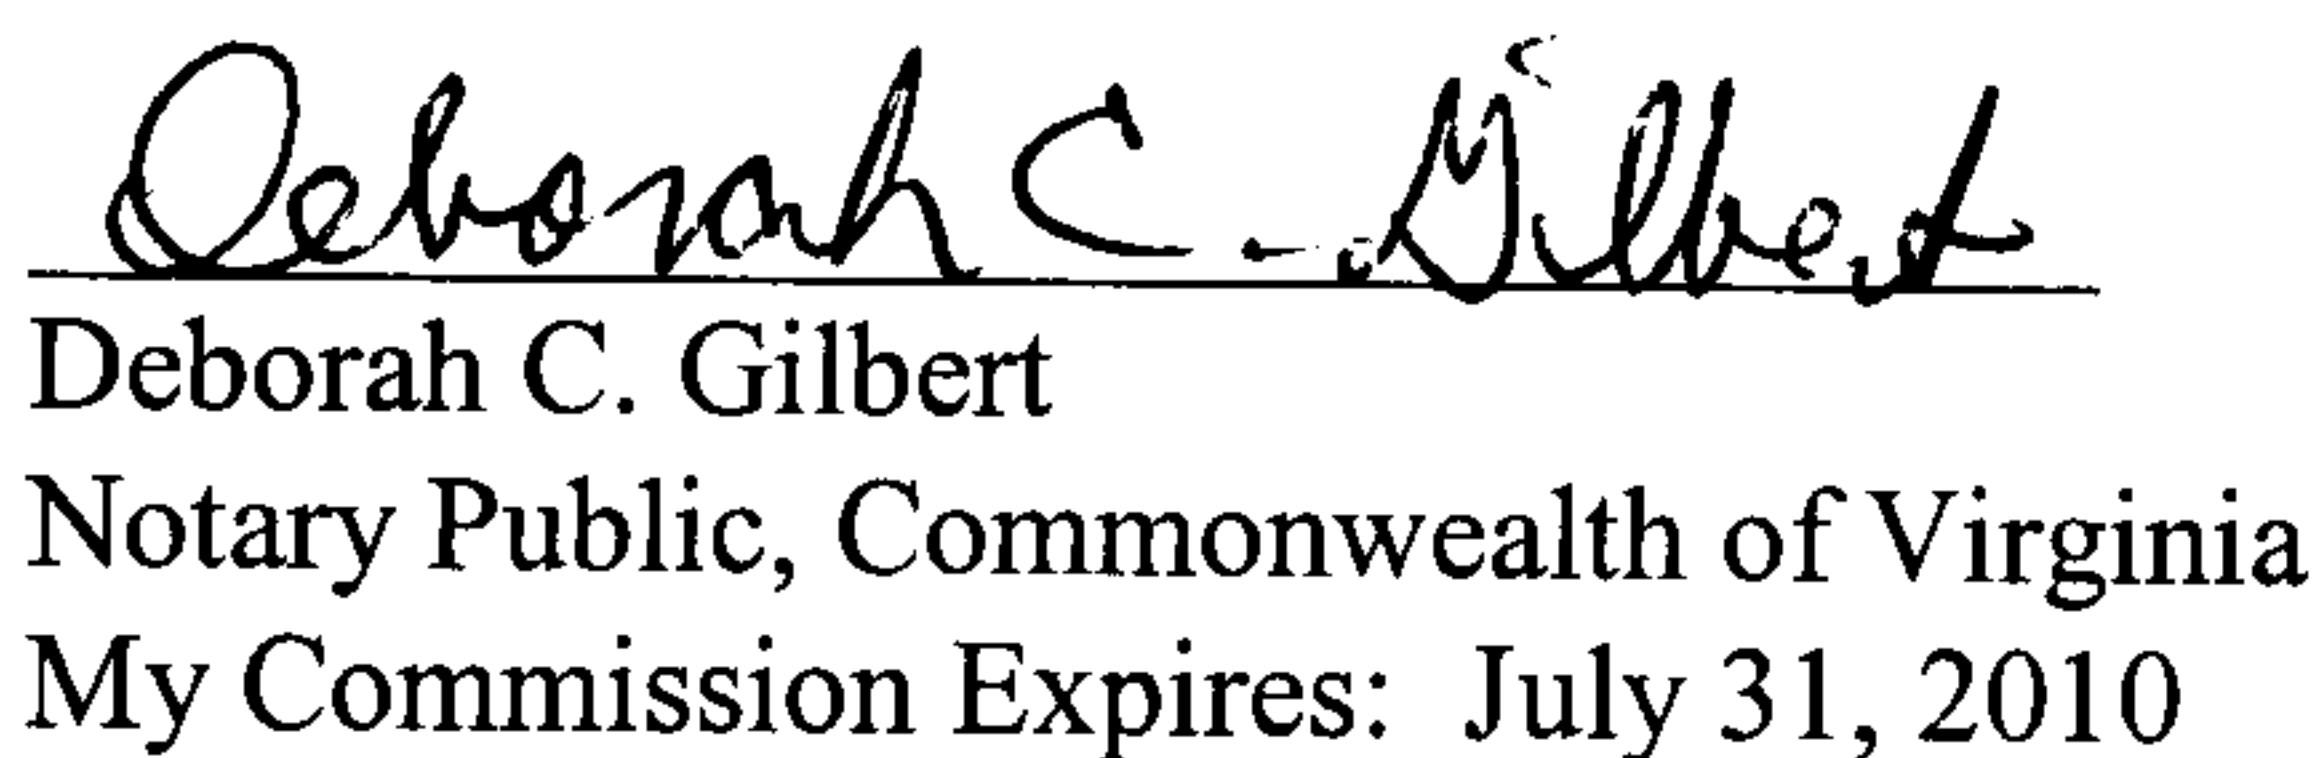 Deborah C. Gilbert
Deborah C. Gilbert
Notary Public, Commonwealth of Virginia
My Commission Expires: July 31, 2010